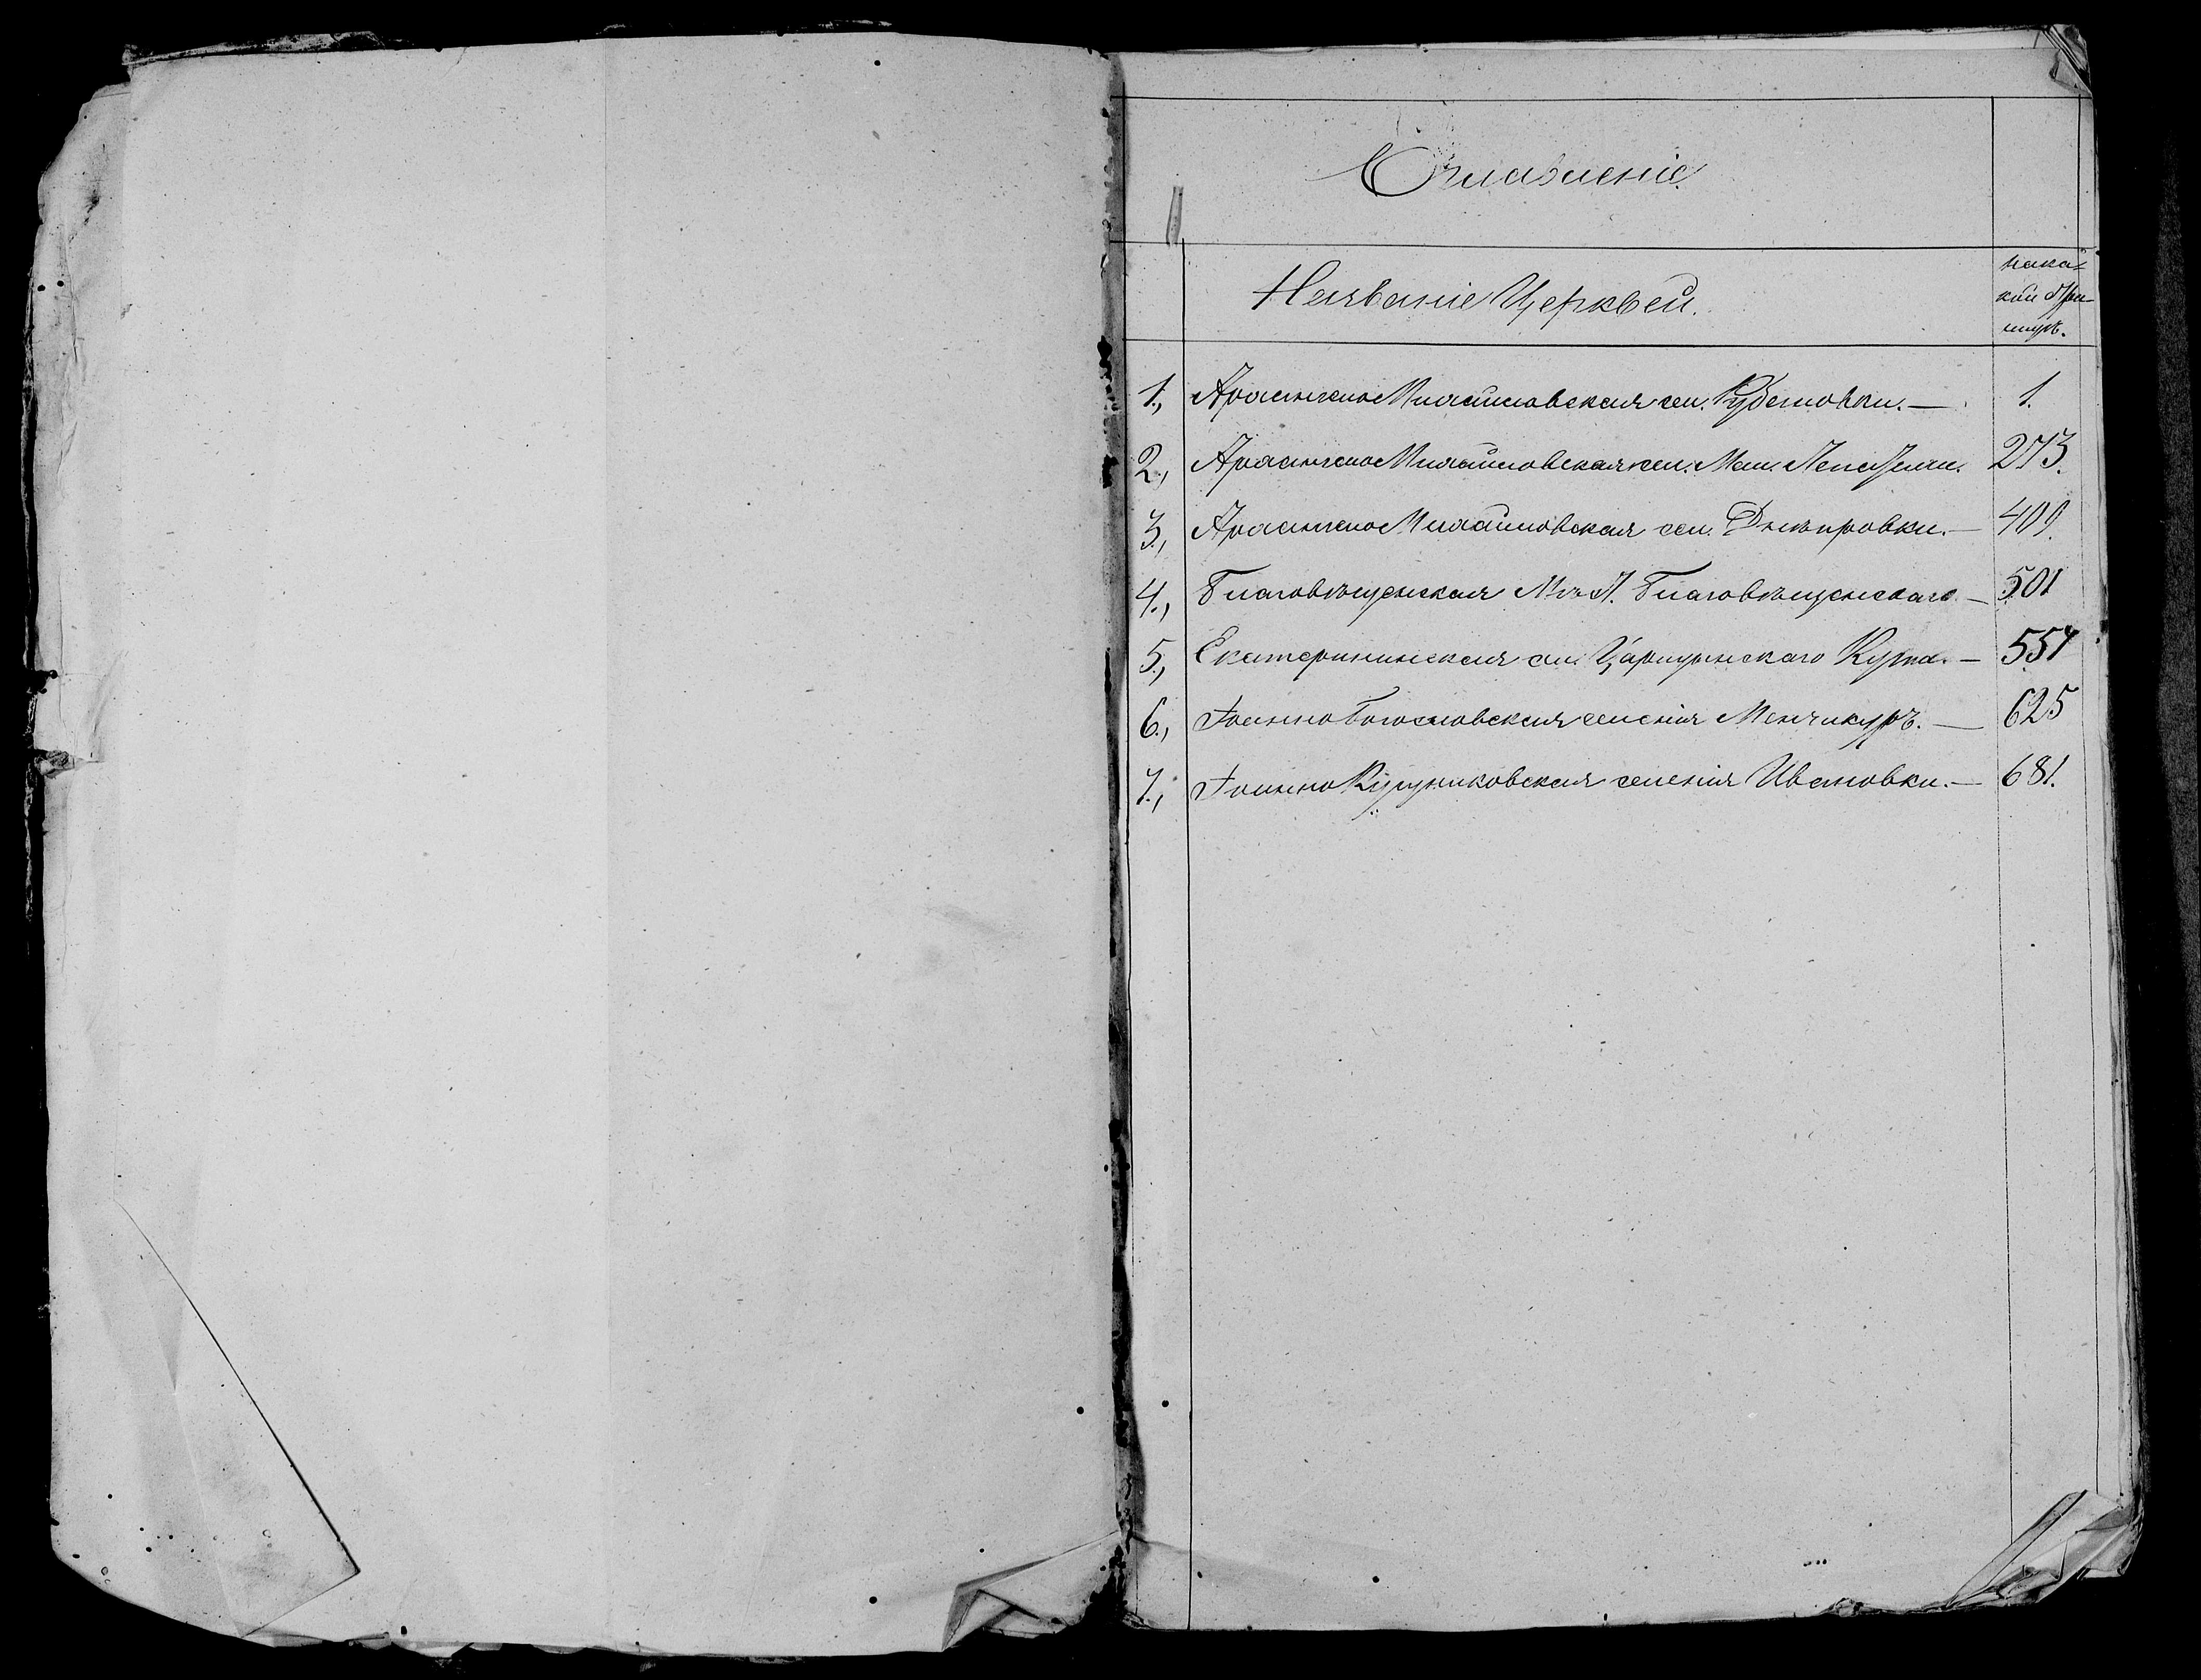 Оглавленіе
Названіе Церквей.
на ка-
кой Стра-
ницѣ.
1., Архангело Михайловская сел. Рубановки. — 1.
2., Архангело Михайловская сел. Мал. Лепетихи. 273.
3., Архангело Михайловская сел. Днѣпровки. — 409.
4., Благовѣщенская Благовѣщенскаго. — 501
5., Екатерининская Царицынскаго Кута. — 557
6., Іоанно Богословская селенія Менчикуръ. — 625
7., Іоанно селенія Ивановки. — 681.